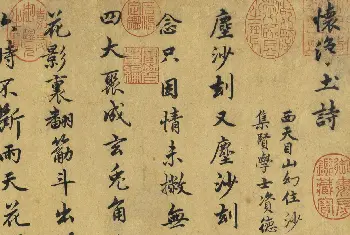 懷淨土詩
西天目山幻住沙
集賢學士資德
塵沙刦又塵沙刦
念只因情未撇無
四大聚成玄兔角
花影裏翻觔斗出
時不斷雨天花